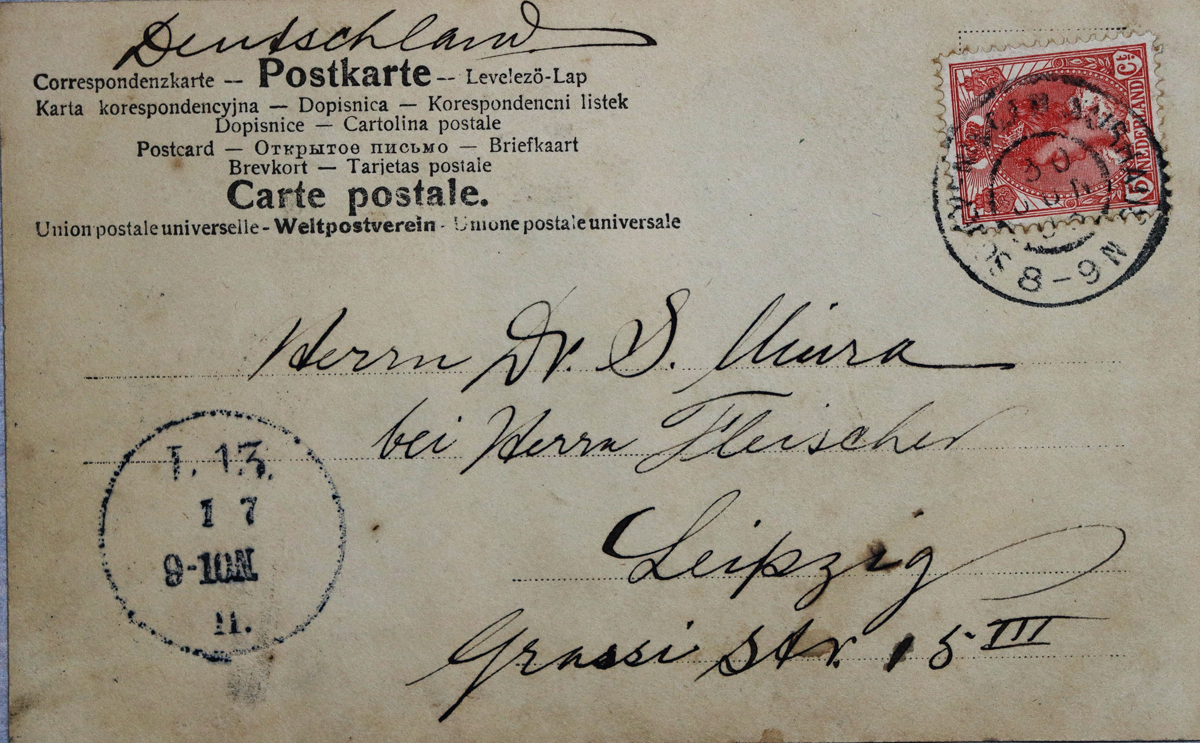 Deutschland
Correspondenzkarte — Postkarte — Levelező-Lap
Karta korespondencyjna — Dopisnica — Korespondencni listek
Dopisnice — Cartolina postale
Postcard — Открытое письмо — Briefkaart
Brevkort — Tarjetas postale
Carte postale.
Union postale universelle - Weltpostverein - Unione postale universale
NEDERLAND
5 5
30
8-9N
Herrn Dr. S. Miura
bei Herrn Fleischer
Leipzig
Grassi Str. 15 III
L.13.
1 7
9-10N.
II.